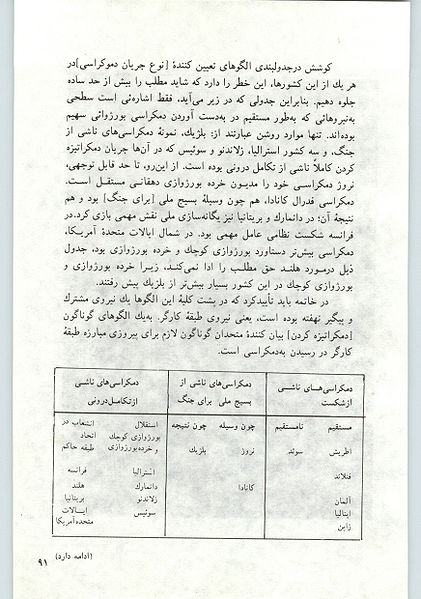 کوشش درجدولبندی الگوهای تعیین کنندهٔ [نوع جریان دموکراسی]در
هر یك از این کشورها، این خطر را دارد که شاید مطلب را بیش از حد ساده
جلوه دهیم. بنابراین جدولی که در زیر می‌آید، فقط اشاره‌ئی است سطحی
به‌نیروهائی که به‌طور مستقیم در به‌دست آوردن دمکراسی بورژوائی سهیم
بوده‌اند. تنها موارد روشن عبارتند از: بلژیك، نمونهٔ دمکراسی‌های ناشی از
جنگ، و سه کشور استرالیا، زلاندنو و سوئیس که در آن‌ها جریان دمکراتیزه
کردن کاملاً ناشی از تکامل درونی بوده است. از این‌رو، تا حد قابل توجهی،
نروژ دمکراسی خود را مدیون خرده بورژوازی دهقانی مستقل است.
دمکراسی فدرال کانادا، هم چون وسیلهٔ بسیج ملی [برای جنگ] بود و هم
نتیجهٔ آن؛ در دانمارك و بریتانیا نیز یگانه‌سازی ملی نقش مهمی بازی کرد.در
فرانسه شکست نظامی عامل مهمی بود. در شمال ایالات متحدهٔ آمریکا،
دمکراسی بیش‌تر دستاورد بورژوازی کوچك و خرده بورژوازی بود، جدول
ذیل درمـورد هلنـد حق مطلـب را ادا نمی‌کنـد، زیـرا خرده بورژوازی و
بورژوازی کوچك در این کشور بسیار بیش‌تر از بلژیك پیش رفتند.
در خاتمه باید تأییدکرد که در پشت کلیهٔ این الگوها یك نیروی مشترك
و پیگیر نهفته بوده است، یعنی نیروی طبقهٔ کارگر. به‌یك الگوهای گوناگون
[دمکراتیزه کردن] بیان کنندهٔ متحدان گوناگون لازم برای پیروزی مبارزه طبقهٔ
کارگر در رسیدن به‌دمکراسی است.
دمکراسی‌هـای ناشـی دمکراسی‌های ناشی از دمکراسی‌های ناشی
ازشکست بسیج ملی برای جنگ ازتکامل‌درونی
مستقیم نامستقیم چون وسیله چون نتیجه استقلال انشعاب در
بورژوازی کوچك اتحاد
اطریش سوئد نروژ بلژیك و خرده‌بورژوازی طبقه حاکم
فنلاند استرالیا فرانسه
کانادا دانمارك هلند
آلمان زلاندنو بریتانیا
ایتالیا سوئیس ایـالات
ژاپن متحده‌آمریکا
(ادامه دارد)
۹۱